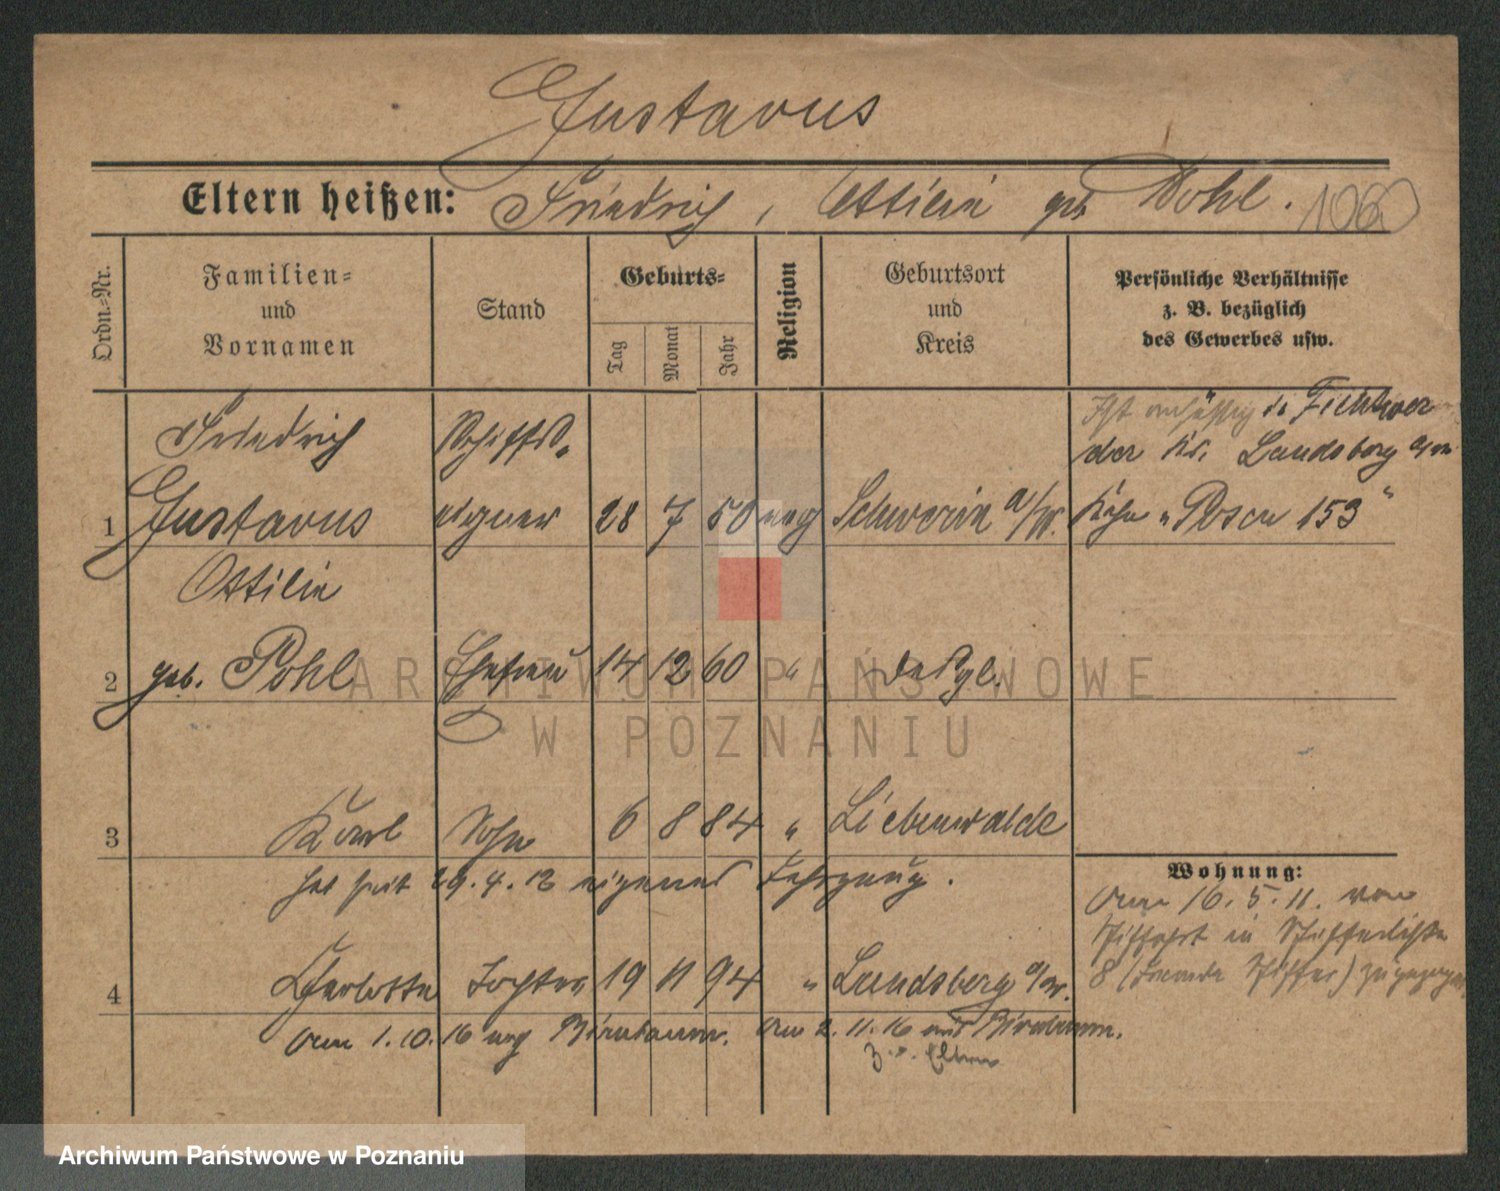 Gustavus
Eltern heißen: Friedrich, Ottilie geb. Pohl.
Ordn.-Nr.
Familien-
und
Vornamen
Stand
Geburts-
Tag
Monat
Jahr
Religion
Geburtsort
und
Kreis
Persönliche Verhältnisse
z. B. bezüglich
des Gewerbes usw.
Friedrich Schiffs-
1 Gustavus eigner 28 7 50 evg Schwerin a/W.
Ist ansässig in Fichtwer
der Kr. Landsberg a/W
Kahn „Posen 153"
Ottilie
2 geb. Pohl Ehefrau 14 12 60 " desgl.
3 Karl Sohn 6 8 84 " Liebenwalde
hat seit 29.4.12 eigenes Fahrzeug.
4 Charlotte Tochter 19 11 94 " Landsberg a/W.
Am 1.10.16 nach Birnbaum. Am 2.11.16 aus Birnbaum.
z. d. Eltern
Wohnung:
Am 16.5.11. von
Schiffahrt in Schifferliste
8 (Fremde Schiffer) zugezogen
ARCHIWUM PAŃSTWOWE
W POZNANIU
Archiwum Państwowe w Poznaniu